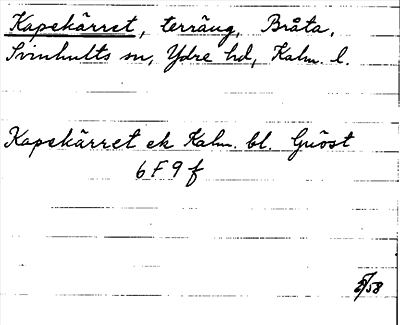 Kapekärret, terräng, Bråta,
Svinhults sn, Ydre hd, Kalm. l.
Kapekärret ek Kalm. bl. Gnöst
6 F 9 f
5/58